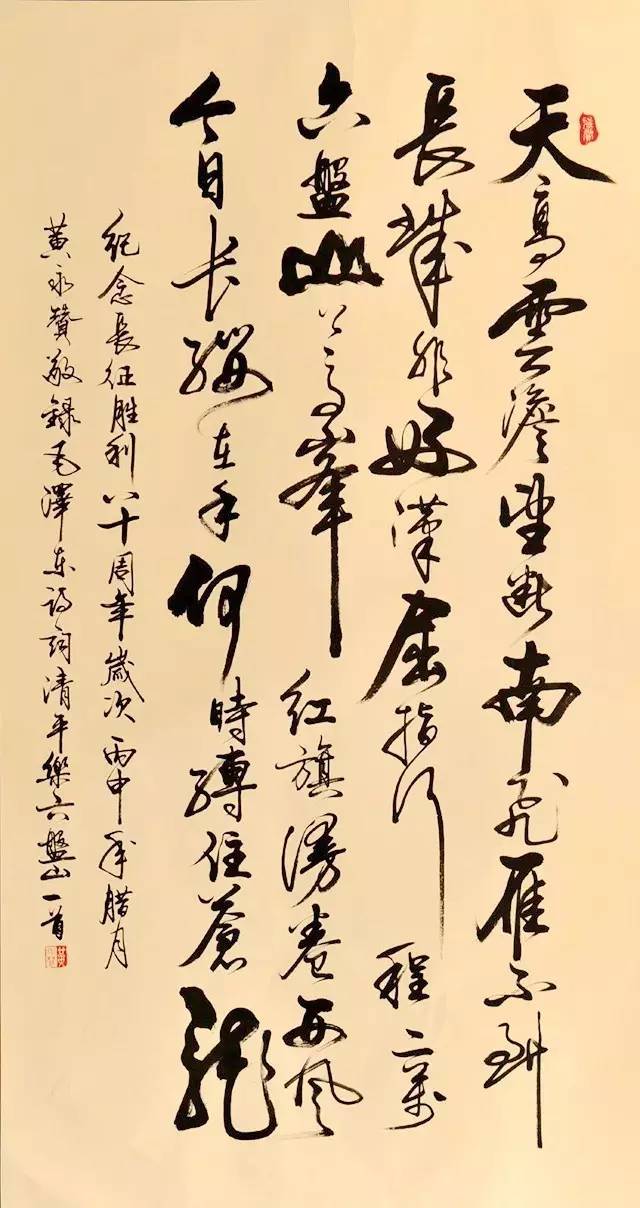 天高雲澹望斷南飛雁不到
長城非好漢屈指行程二萬
六盤山上高峯红旗漫卷西风
今日长缨在手何時縛住蒼龍
纪念長征胜利八十周年歲次丙申年腊月
黄永贊敬録毛澤东诗词清平樂六盤山一首